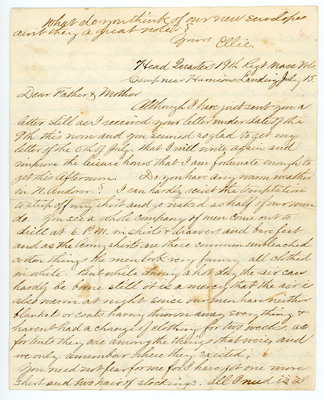 What do you think of our new envelopes
aint they a great notes?
Yours Ellie.
Head Quarters 19th Regt Mass Vols
Camp near Harrisons Landing July 15
Dear Father & Mother
Although I have just sent you a
letter still as I received your letter under date of the
9th this noon and you seemed so glad to get my
letter of the 6th of July, that I will write again and
improve the leisure hours that I am fortunate enough to
get this afternoon. Do you have any warm weather
in N. Andover? I can hardly resist the temptation
to strip off my shirt and go naked as half of our men
do. You see a whole company of men come out to
drill at 6 P.M. in shirt & drawers and bare feet
and as the army shirts are there common unbleached
cotton things the men look very funny all clothed
in white. But while during a hot day the air can
hardly be borne still it is a mercy that the air is
also warm at night since our men have neither
blankets or coats having thrown away everything &
havent had a change of clothing for two weeks, as
for tents they are among the things that were, and
we only remember where they existed;
You need not fear for me for I have got one more
shirt and two pair of stockings. All I need is a